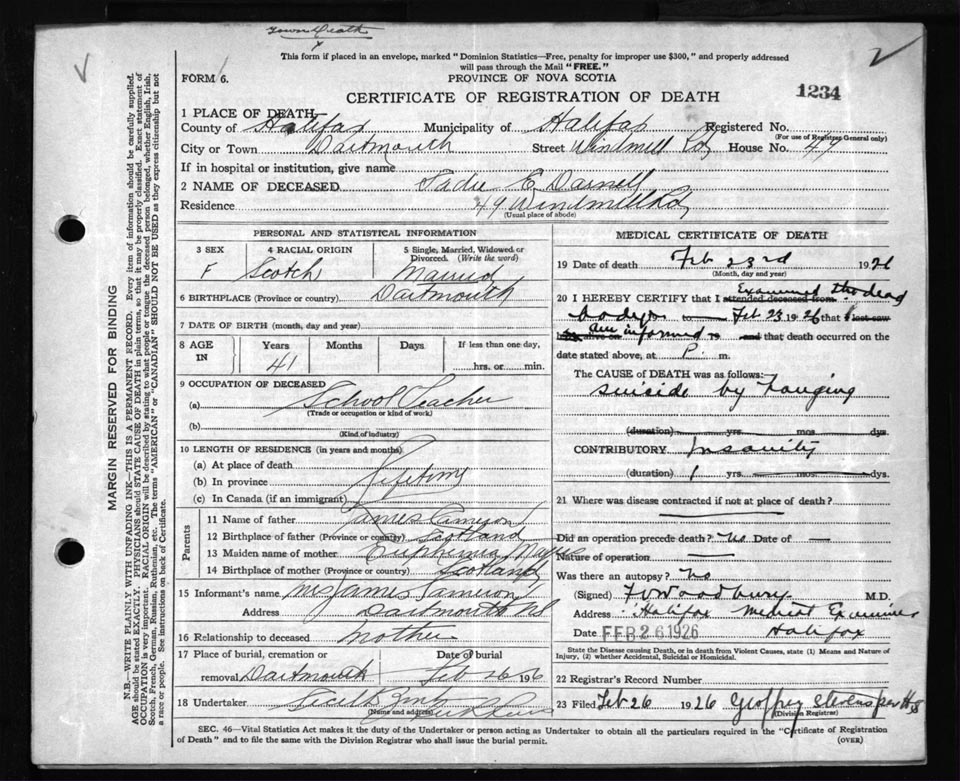 Town Death
This form if placed in an envelope, marked "Dominion Statistics—Free, penalty for improper use $300," and properly addressed
will pass through the Mail "FREE."
FORM 6.
PROVINCE OF NOVA SCOTIA
CERTIFICATE OF REGISTRATION OF DEATH
1234
1 PLACE OF DEATH
County of Halifax Municipality of Halifax Registered No.
(For use of Registrar-General only)
City or Town Dartmouth Street Windmill Rd House No. 49
If in hospital or institution, give name
2 NAME OF DECEASED Sadie E Darnell
Residence 49 Windmill Rd
(Usual place of abode)
PERSONAL AND STATISTICAL INFORMATION
3 SEX F
4 RACIAL ORIGIN Scotch
5 Single, Married, Widowed or Divorced. (Write the word) Married
6 BIRTHPLACE (Province or country) Dartmouth
7 DATE OF BIRTH (month, day and year)
8 AGE IN Years 41 Months Days If less than one day, hrs. or min.
9 OCCUPATION OF DECEASED
(a) School Teacher
(Trade or occupation or kind of work)
(b)
(Kind of industry)
10 LENGTH OF RESIDENCE (in years and months)
(a) At place of death
(b) In province Lifetime
(c) In Canada (if an immigrant)
Parents
11 Name of father James Cameron
12 Birthplace of father (Province or country) Scotland
13 Maiden name of mother Euphemia
14 Birthplace of mother (Province or country) Scotland
15 Informant's name Mrs James Cameron
Address Dartmouth NS
16 Relationship to deceased Mother
17 Place of burial, cremation or removal Dartmouth
Date of burial Feb 26 1926
18 Undertaker
(Name and address)
MEDICAL CERTIFICATE OF DEATH
19 Date of death Feb 23rd 1926
(Month, day and year)
20 I HEREBY CERTIFY that I attended deceased from Examined the dead
body to Feb 23 1926 that I last saw
am informed and that death occurred on the
date stated above, at P. m.
The CAUSE of DEATH was as follows:
suicide by hanging
(duration) yrs. mos. dys.
CONTRIBUTORY Insanity
(duration) 1 yrs. mos. dys.
21 Where was disease contracted if not at place of death?
Did an operation precede death? No Date of —
Nature of operation —
Was there an autopsy? No
(Signed) F V Woodbury M.D.
Address Halifax Medical Examiner
Date FEB 26 1926 Halifax
State the Disease causing Death, or in death from Violent Causes, state (1) Means and Nature of
Injury, (2) whether Accidental, Suicidal or Homicidal.
22 Registrar's Record Number
23 Filed Feb 26 1926 Geoffrey Stevens
(Division Registrar)
SEC. 46—Vital Statistics Act makes it the duty of the Undertaker or person acting as Undertaker to obtain all the particulars required in the "Certificate of Registration
of Death" and to file the same with the Division Registrar who shall issue the burial permit.
(OVER)
MARGIN RESERVED FOR BINDING
N.B.—WRITE PLAINLY WITH UNFADING INK—THIS IS A PERMANENT RECORD. Every item of information should be carefully supplied.
AGE should be stated EXACTLY. PHYSICIANS should STATE CAUSE OF DEATH in plain terms, so that it may be properly classified. Exact statement of
OCCUPATION is very important. RACIAL ORIGIN will be described by stating to what people or tongue the deceased person belonged, whether English, Irish,
Scotch, French, German, Russian, Ruthenian, etc. The terms "AMERICAN" or "CANADIAN" SHOULD NOT BE USED as they express citizenship but not
a race or people. See instructions on back of Certificate.